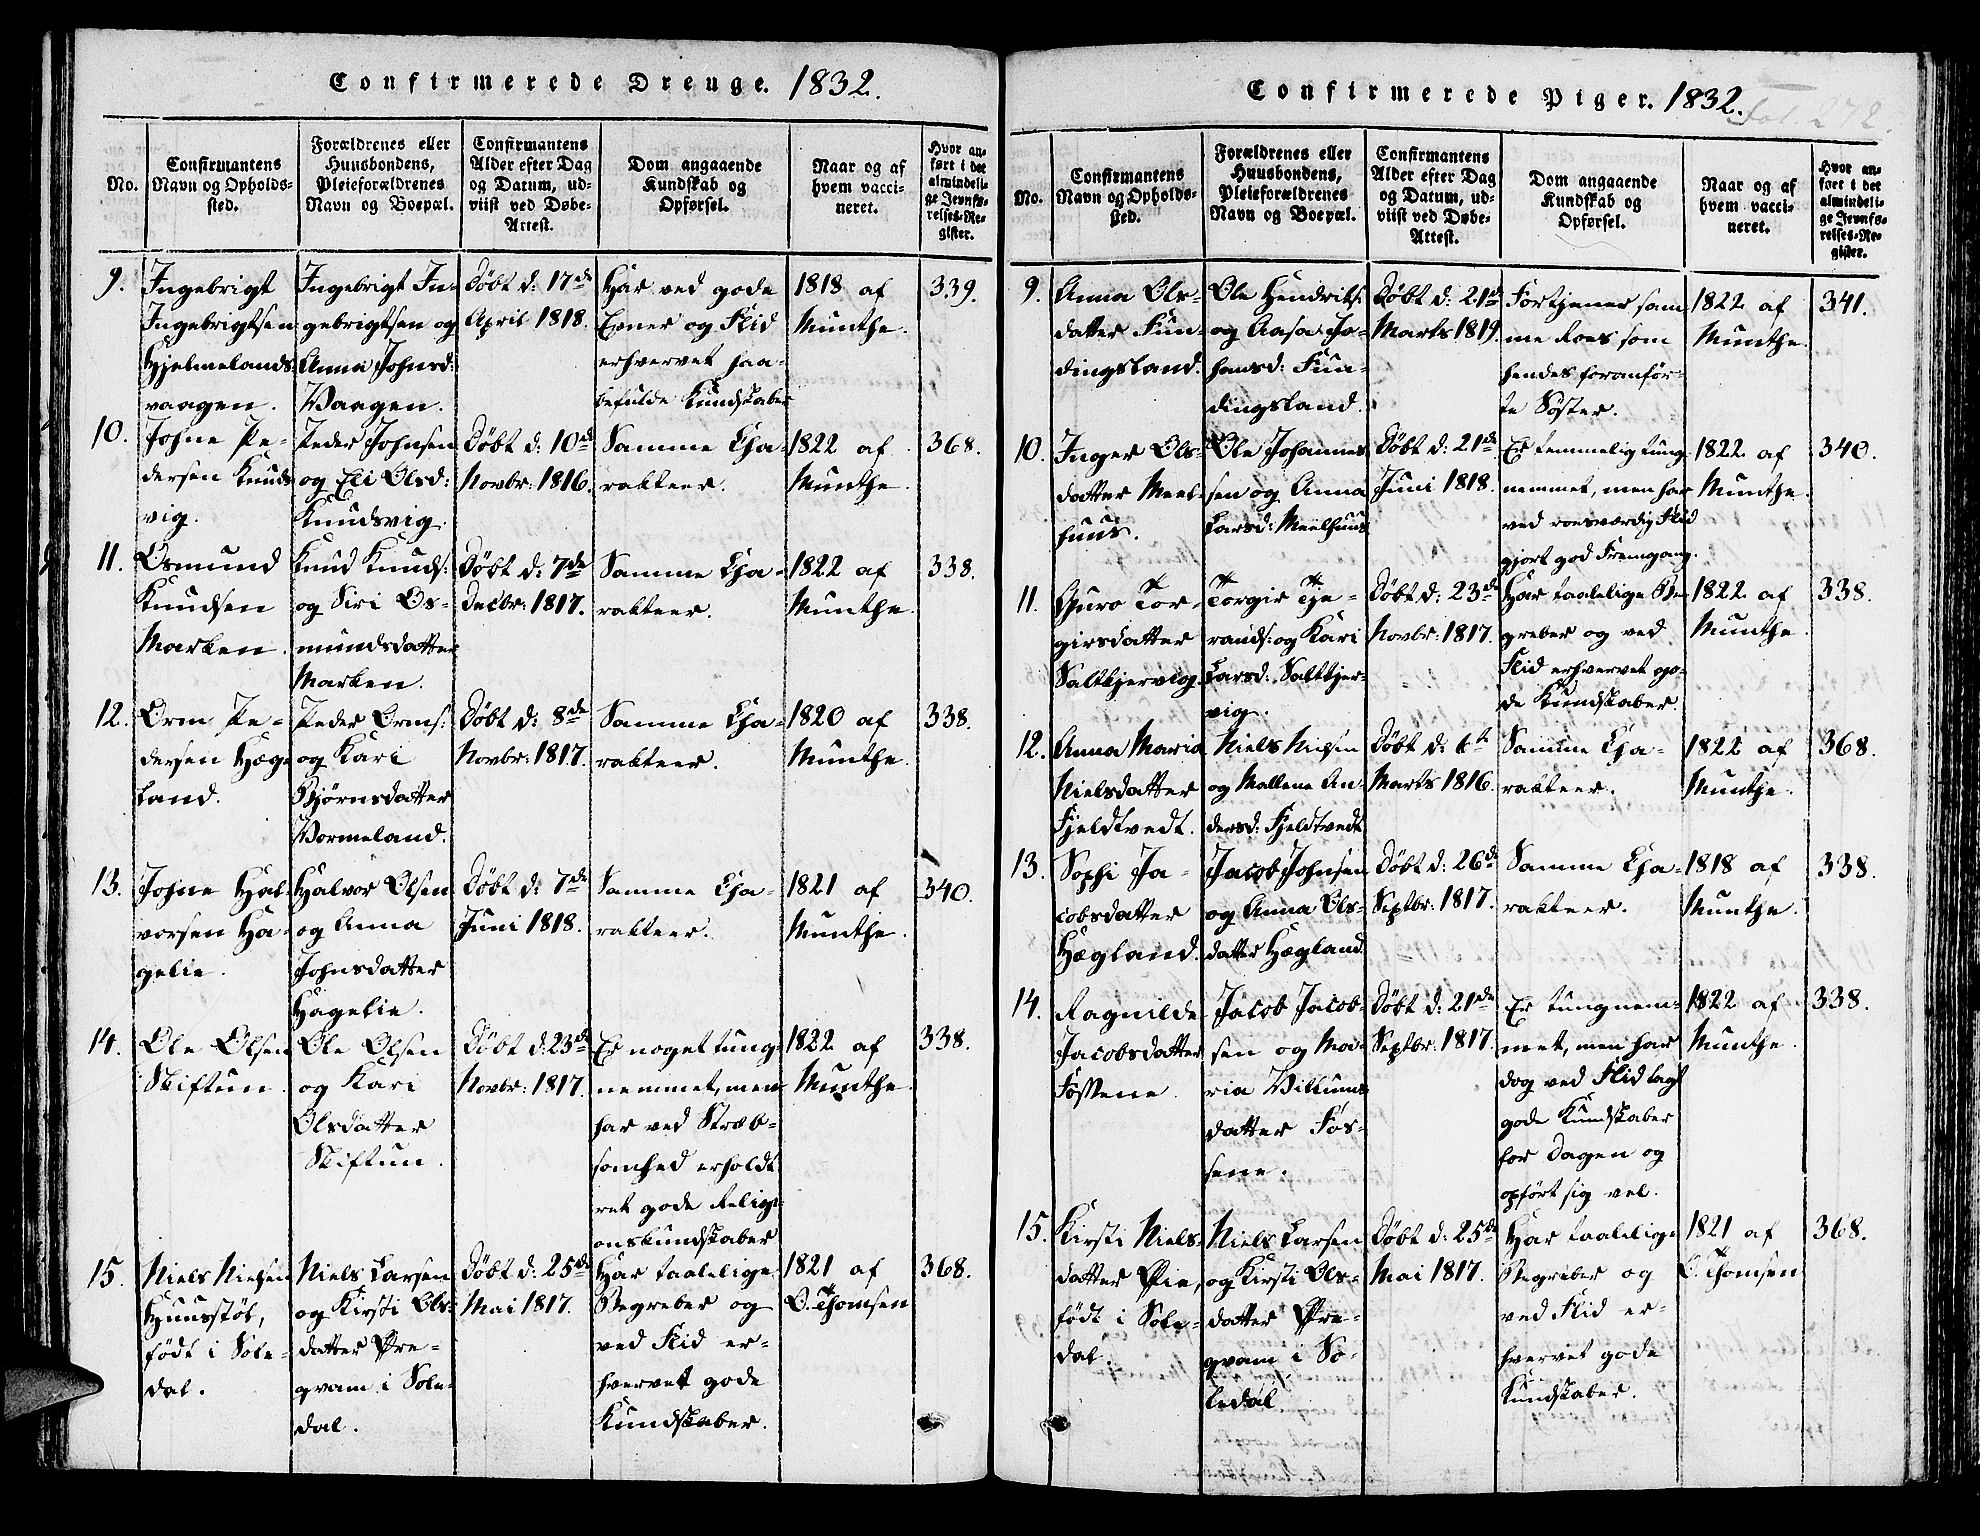 Confirmerede Drenge. 1832.
No.
Confirmantens
Navn og Opholds-
sted.
Forældrenes eller
Huusbondens,
Pleieforældrenes
Navn og Boepæl.
Confirmantens
Alder efter Dag
og Datum, ud-
viist ved Døbe-
Attest.
Dom angaaende
Kundskab og
Opførsel.
Naar og af
hvem vacci-
neret.
Hvor an-
ført i det
almindeli-
ge Jevnfø-
relses-Re-
gister.
9.
Ingebrigt
Ingebrigtsen
Hjelmelands
vaagen.
Ingebrigt In-
gebrigtsen og
Anna Johnsd:
Vaagen.
Døbt d: 17de
April 1818.
Har ved gode
Evner og Flid
erhvervet haa-
befulde Kundskaber
1818 af
Munthe.
339.
10.
Johne Pe-
dersen Knuds
vig.
Peder Johnsen
og Eli Olsd:
Knudsvig.
Døbt d: 10de
Novbr: 1816.
Samme Cha-
rakteer.
1822 af
Munthe.
368.
11.
Osmund
Knudsen
Marken.
Knud Knuds:
og Siri Os-
mundsdatter
Marken.
Døbt d: 7de
Decbr: 1817.
Samme Cha-
rakteer.
1822 af
Munthe.
338.
12.
Orm Pe-
dersen Hæg-
land.
Peder Orms:
og Kari
Bjørnsdatter
Vormeland.
Døbt d: 8de
Novbr: 1817.
Samme Cha-
rakteer.
1820 af
Munthe.
338.
13.
Johne Hal-
vorsen Ha-
gelie.
Halvor Olsen
og Anna
Johnsdatter
Hagelie.
Døbt d: 7de
Juni 1818.
Samme Cha-
rakteer.
1821 af
Munthe.
340.
14.
Ole Olsen
Skiftun.
Ole Olsen
og Kari
Olsdatter
Skiftun.
Døbt d: 23de
Novbr: 1817.
Er noget tung-
nemmet, men
har ved Stræb-
somhed erholdt
ret gode Religi-
onskundskaber
1822 af
Munthe.
338.
15.
Niels Nielsen
Huusstøl,
født i Sole-
dal.
Niels Larsen
og Kirsti Ols-
datter Pre-
gvam i Sole-
dal.
Døbt d: 25de
Mai 1817.
Har taalelige
Begreber og
ved Flid er-
hvervet gode
Kundskaber.
1821 af
O. Thomsen
368.
Confirmerede Piger. 1832.
Fol. 272.
No.
Confirmantens
Navn og Opholds-
sted.
Forældrenes eller
Huusbondens,
Pleieforældrenes
Navn og Boepæl.
Confirmantens
Alder efter Dag
og Datum, ud-
viist ved Døbe-
Attest.
Dom angaaende
Kundskab og
Opførsel.
Naar og af
hvem vacci-
neret.
Hvor an-
ført i det
almindeli-
ge Jevnfø-
relses-Re-
gister.
9.
Anna Ols-
datter Fun-
dingsland.
Ole Hendriks:
og Aasa Jo-
hansd: Fun-
dingsland.
Døbt d: 21d
Marts 1819.
Fortjener sam-
me Roes som
hendes foranfør-
te Søster.
1822 af
Munthe.
341.
10.
Inger Ols-
datter Meel-
huus.
Ole Johannes
sen og Anna
Larsd: Meelhuus
Døbt d: 21de
Juni 1818.
Er temmelig tung-
nemmet, men har
ved roesværdig Flid
gjort god Fremgang.
1822 af
Munthe.
340.
11.
Guro Tor-
girsdatter
Saltkjervig.
Torgir Tje-
rands: og Kari
Larsd: Saltkjer-
vig.
Døbt d: 23de
Novbr: 1817.
Har taalelige Be-
greber og ved
Flid erhvervet go-
de Kundskaber.
1822 af
Munthe.
338.
12.
Anna Maria
Nielsdatter
Fjeldtvedt.
Niels Nielsen
og Mallene An-
dersd: Fjeldtvedt
Døbt d: 6te
Marts 1816.
Samme Cha-
rakteer.
1822 af
Munthe.
368.
13.
Sophi Ja-
cobsdatter
Hægland.
Jacob Johnsen
og Anna Ols-
datter Hægland.
Døbt d: 26de
Septbr: 1817.
Samme Cha-
rakteer.
1818 af
Munthe.
338.
14.
Ragnilde
Jacobsdatter
Fossene.
Jacob Jacob-
sen og Ma-
ria Villums
datter Fos-
sene.
Døbt d: 21de
Septbr: 1817.
Er tungnem-
met, men har
dog ved Flid lagt
gode Kundskaber
for Dagen og
opført sig vel.
1822 af
Munthe.
338.
15.
Kirsti Niels-
datter
født i Sole-
dal.
Niels Larsen
og Kirsti Ols-
datter Pre-
gvam i So-
ledal.
Døbt d: 25de
Mai 1817.
Har taalelige
Begreber og
ved Flid er-
hvervet gode
Kundskaber.
1821 af
O. Thomsen
368.